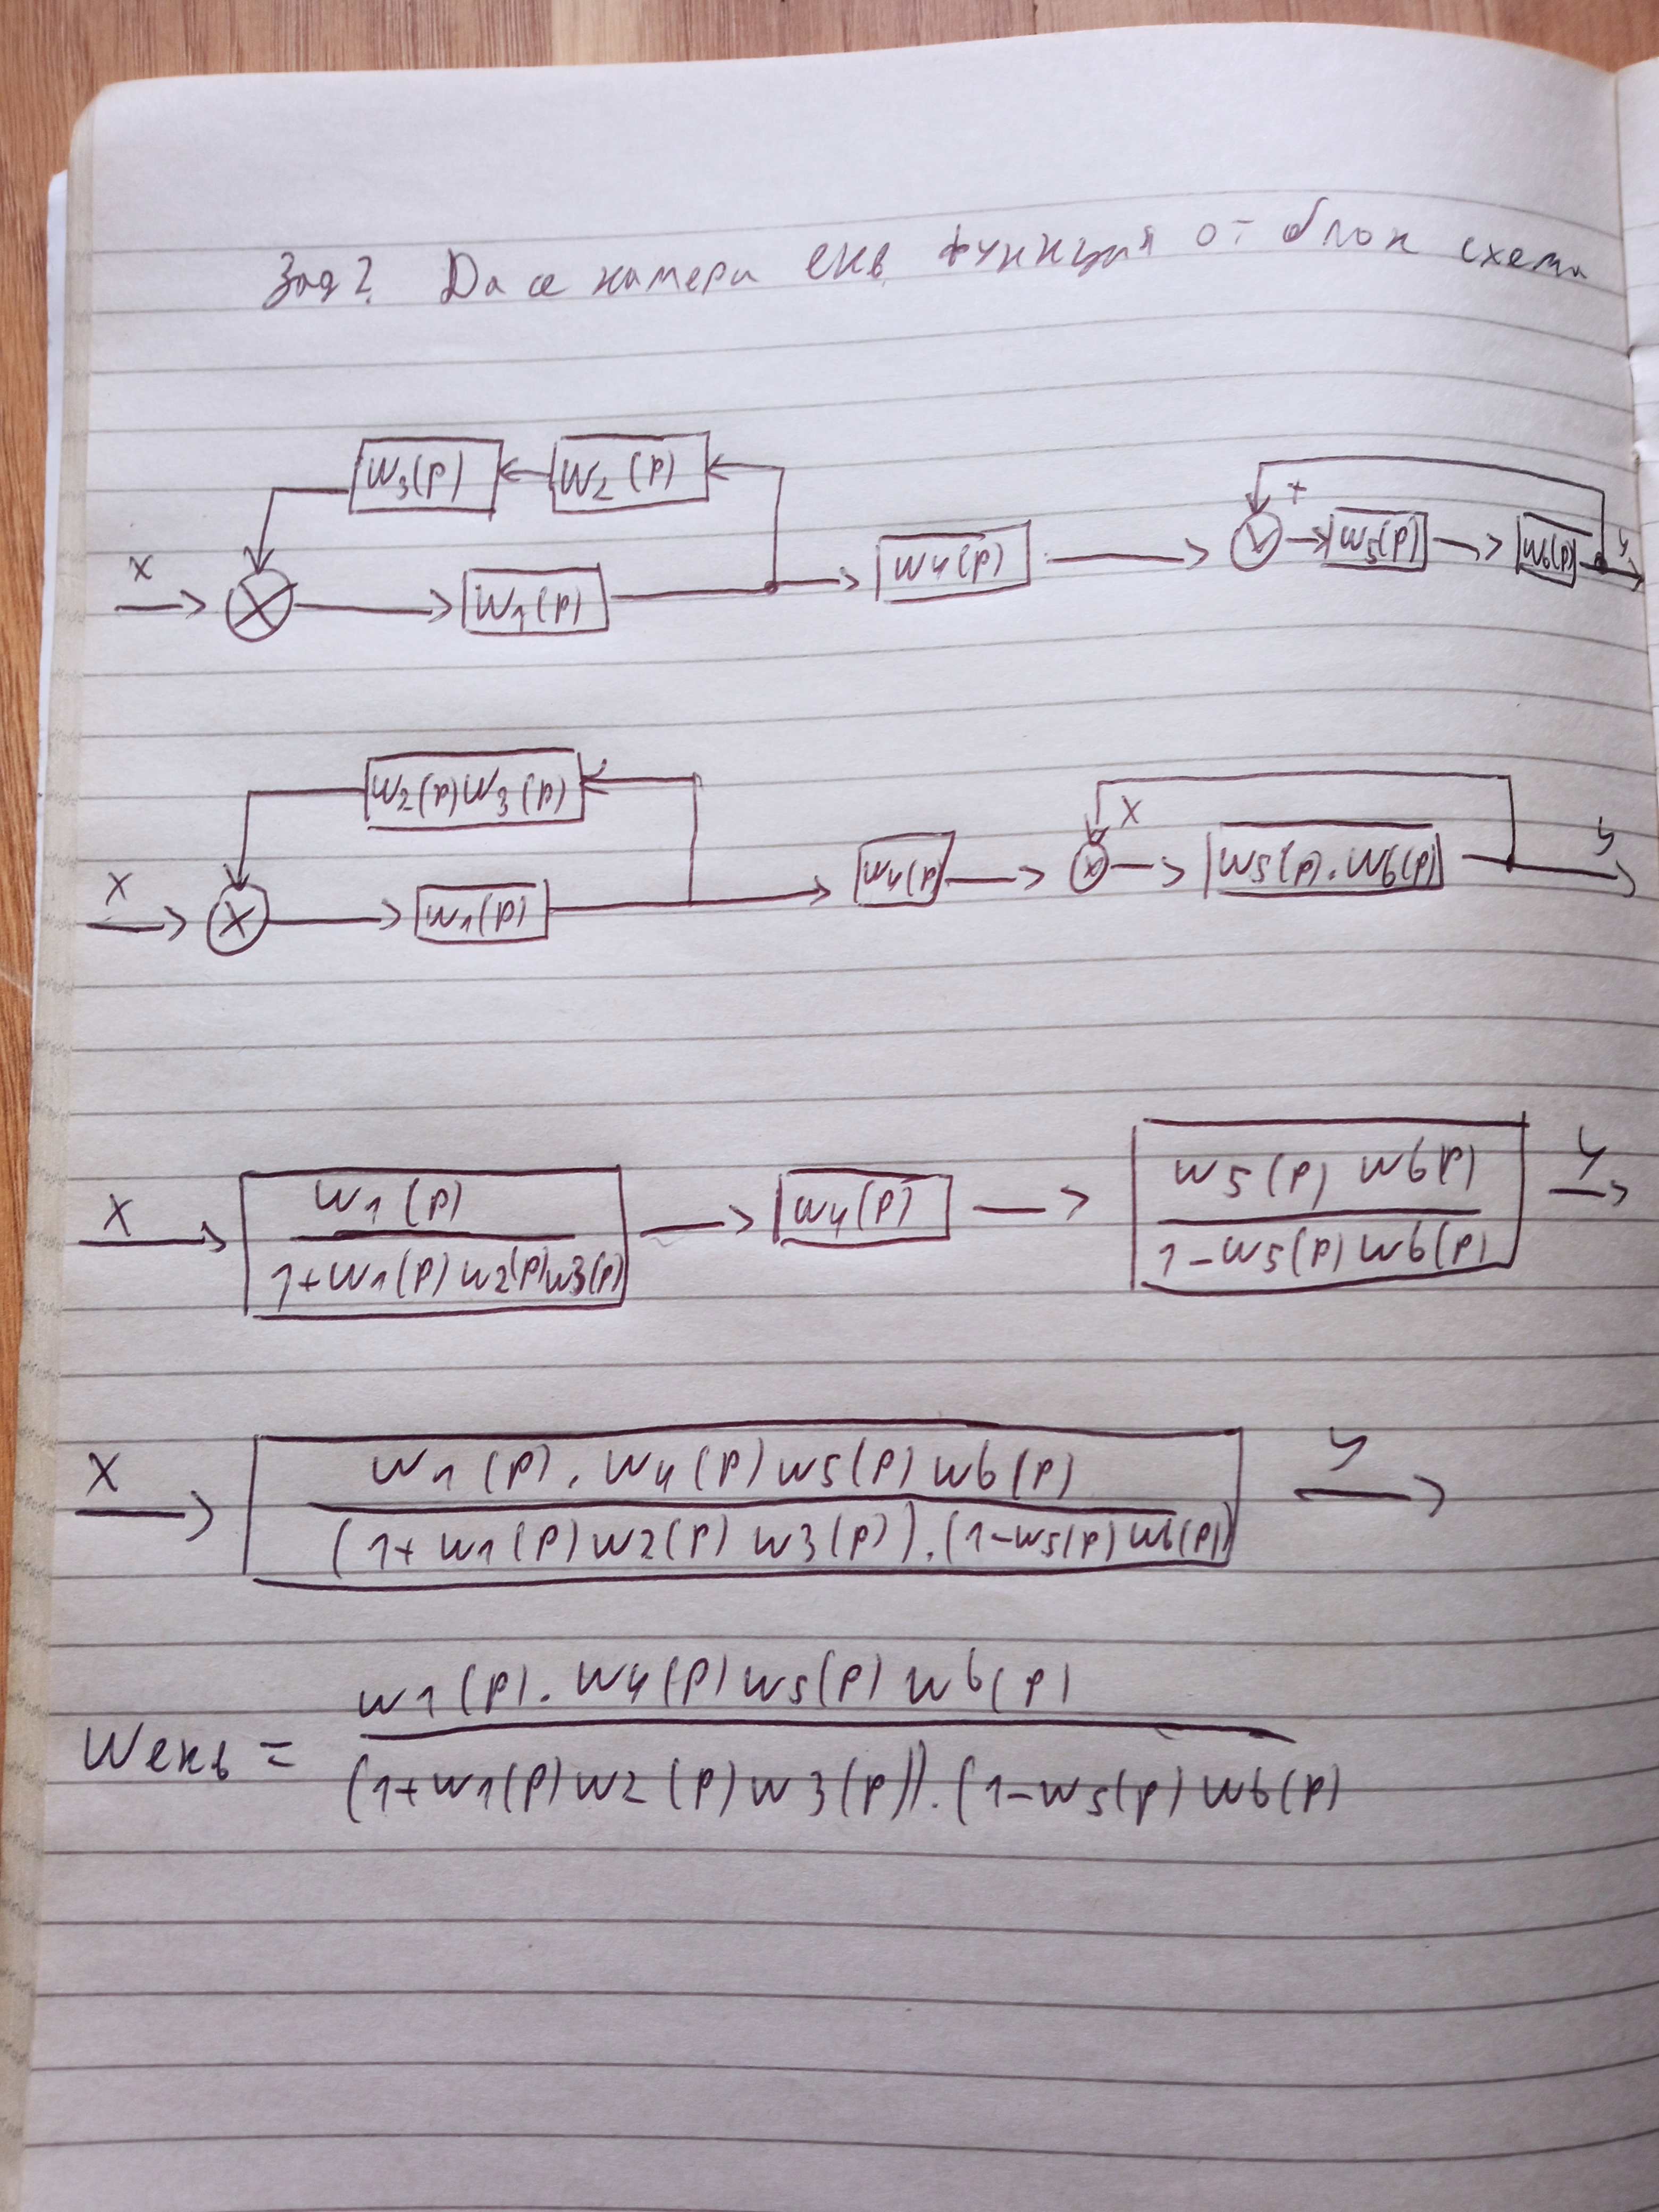 Зад2. Да се намери екв. функция от блок схема
W3(p) W2(p) +
x W1(p) W4(p) W5(p) W6(p) y
W2(p)W3(p) x
x W1(p) W4(p) W5(p).W6(p) y
W1(p) W5(p) W6(p)
x W4(p) y
1+W1(p)W2(p)W3(p) 1-W5(p)W6(p)
x W1(p).W4(p)W5(p)W6(p) y
(1+W1(p)W2(p)W3(p)).(1-W5(p)W6(p))
W1(p).W4(p)W5(p)W6(p)
Wекв =
(1+W1(p)W2(p)W3(p)).(1-W5(p)W6(p)